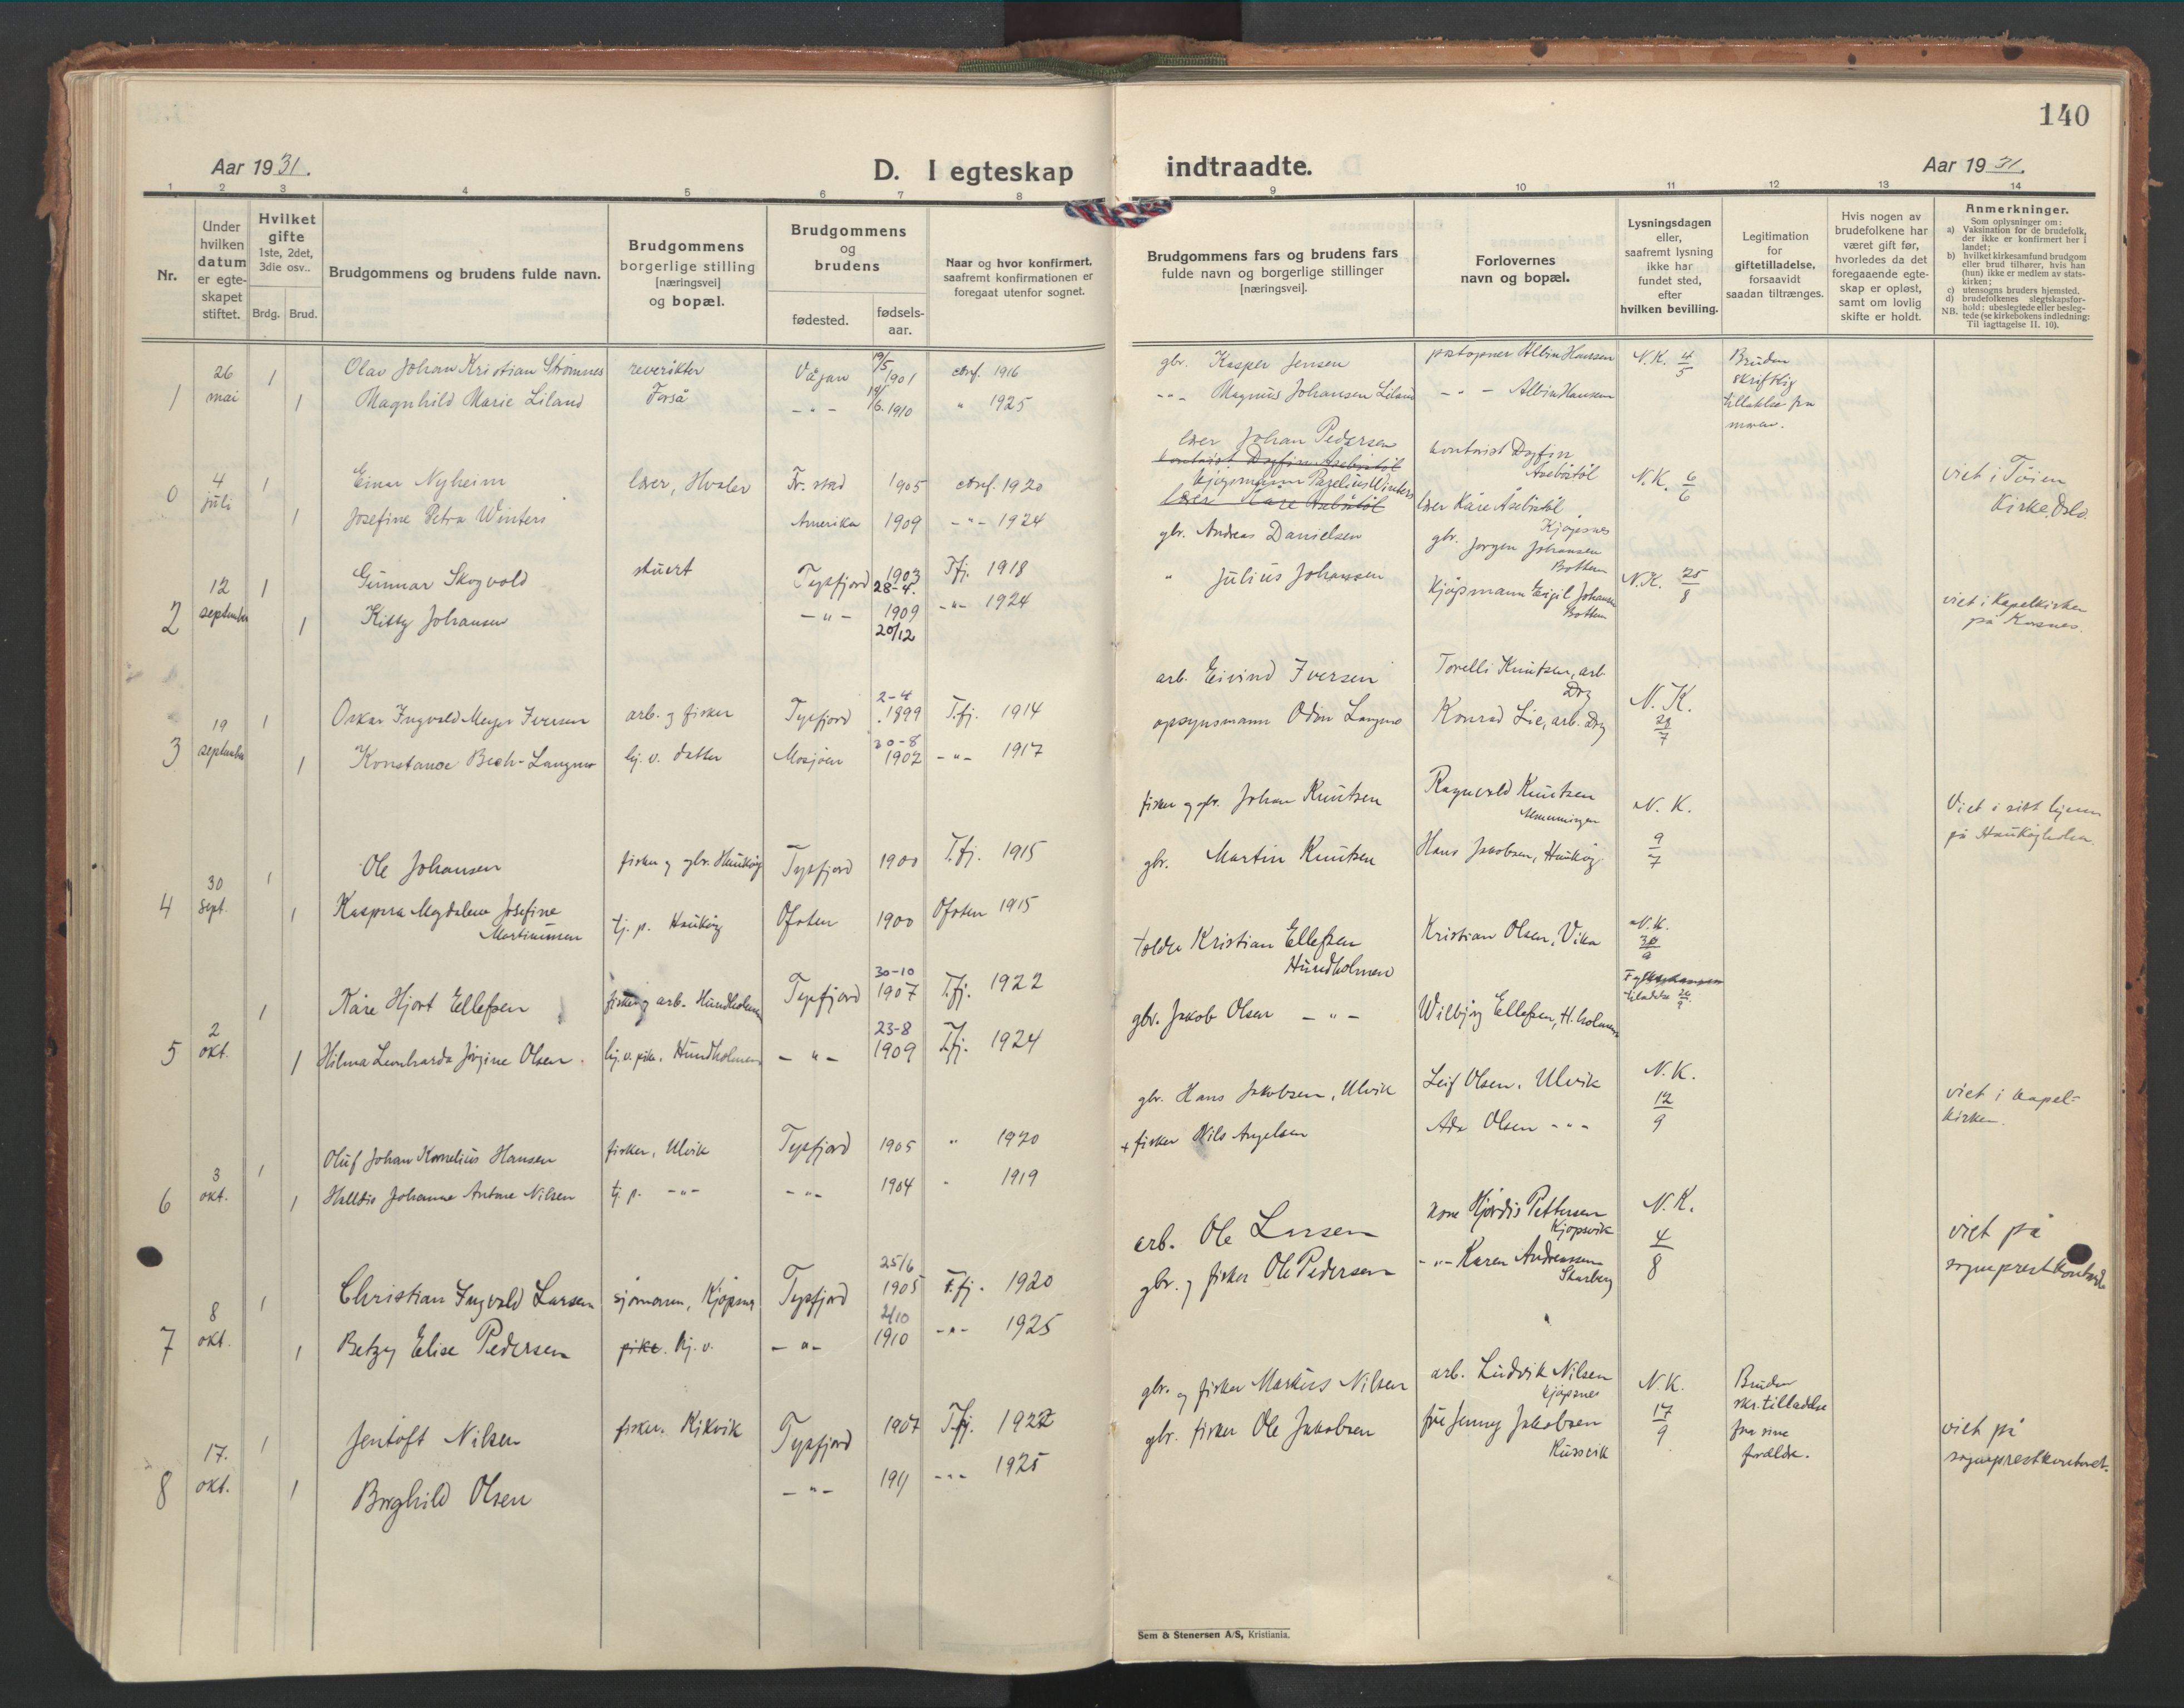 140
Aar 1931.
D. I egteskap indtraadte.
Aar 1931.
1 2 3 4 5 6 7 8 9 10 11 12 13 14
Nr.
Under hvilken datum er egte-skapet stiftet.
Hvilket gifte 1ste, 2det, 3die osv..
Brdg. Brud.
Brudgommens og brudens fulde navn.
Brudgommens borgerlige stilling [næringsvei] og bopæl.
Brudgommens og brudens
fødested.
fødsels-aar.
Naar og hvor konfirmert, saafremt konfirmationen er foregaat utenfor sognet.
Brudgommens fars og brudens fars fulde navn og borgerlige stillinger [næringsvei].
Forlovernes navn og bopæl.
Lysningsdagen eller, saafremt lysning ikke har fundet sted, efter hvilken bevilling.
Legitimation for giftetilladelse, forsaavidt saadan tiltrænges.
Hvis nogen av brudefolkene har været gift før, hvorledes da det foregaaende egte-skap er opløst, samt om lovlig skifte er holdt.
Anmerkninger.
Som oplysninger om:
a) Vaksination for de brudefolk, der ikke er konfirmert her i landet;
b) hvilket kirkesamfund brudgom eller brud tilhører, hvis han (hun) ikke er medlem av stats-kirken;
c) utensogns bruders hjemsted.
d) brudefolkenes slegtskapsfor-hold: ubeslegtede eller besleg-tede (se kirkebokens indledning: NB. Til iagttagelse II. 10).
1 26 mai 1 Olav Johan Kristian Strømnes Vågan 19/5 1901 conf. 1916 gbr. Kasper Jensen Albin Hanssen N.K. 4/5 Bruden skriftlig tillatelse fra moren.
1 Magnhild Marie Liland Forså -"- 1910 " 1925 -"- Magnus Johansen Liland -"- Albin Hanssen
0 4 juli 1 Einar Nyheim lærer, Hvaler Fr. stad 1905 conf. 1920 lærer Johan Pedersen kontorist Dagfin N.K. 6/6 viet i Tøien Kirke, Oslo.
1 Josefine Petra Winters Amerika 1909 -"- 1924 kjøpmann Winters lærer Kåre
2 12 september 1 Gunnar Skogvold stuert Tysfjord 1903 28-4. T.fj. 1918 gbr. Andreas Danielsen gbr. Jørgen Johansen Botten N.K. 25/8 viet i Kapelkirken på Korsnes.
1 Kitty Johansen -"- 1909 20/12 -"- 1924 " Julius Johansen kjøpmann Eigil Johansen Botten
3 19 september 1 Oskar Ingvald Meyer Iversen arb. og fisker Tysfjord 2-4 1899 T.fj. 1914 arb. Eivind Iversen Torelli Knutsen, arb. Drag N.K.
1 Konstance Bech-Langmo hj. v. datter Mosjøen 30-8 1902 -"- 1917 opsynsmann Odin Langmo Konrad Lie, arb. Drag
4 30 sept. 1 Ole Johansen fisker og gbr. Haukøy Tysfjord 1900 T.fj. 1915 fisker og gbr. Johan Knutsen Ragnvald Knutsen N.K. 9/7 Viet i sitt hjem på Haukøyholmen.
1 Kaspara Magdalena Josefine Martinussen tj. p. Haukøy Ofoten 1900 Ofoten 1915 gbr. Martin Knutsen Hans Jakobsen, Haukøy
5 2 okt. 1 Kåre Hjort Ellefsen fisker og arb. Hundholmen Tysfjord 30-10 1907 T.fj. 1922 Kristian Ellefsen Hundholmen Kristian Olsen, Vika N.K. 30/9
1 Hilma Leonharda Jørgine Olsen hj. v. pike. Hundholmen -"- 23-8 1909 T.fj. 1924 gbr. Jakob Olsen -"- Wilbjørg Ellefsen, H.holmen
6 3 okt. 1 Oluf Johan Kornelius Hansen fisker, Ulvik Tysfjord 1905 " 1920 gbr. Hans Jakobsen, Ulvik Leif Olsen, Ulvik N.K. 12/9 viet i kapel-kirken.
1 Halldis Johanne Antone Nilsen tj. p. -"- -"- 1904 " 1919 + fisker Nils Angelsen Ada Olsen -"-
7 8 okt. 1 Christian Ingvald Larsen sjømann, Kjøpsnes Tysfjord 25/6 1905 T.fj. 1920 arb. Ole Larsen kone Hjørdis Pettersen Kjøpsvik N.K. 4/8 viet på sogneprestkontoret
1 Betzy Elise Pedersen pike. hj. v. -"- 2/10 1910 -"- 1925 gbr. og fisker Ole Pedersen -"- Karen Andreassen Skarberg
8 17. okt. 1 Jentoft Nilsen fisker. Kikvik Tysfjord 1907 T.fj. 1922 gbr. og fisker Markus Nilsen arb. Ludvik Nilsen Kjøpsnes N.K. 17/9 Bruden skr. tilladelse fra sine forældre. viet på sogneprestkontoret.
1 Borghild Olsen -"- 1911 -"- 1925 gbr. fisker Ole Jakobsen frk Jenny Jakobsen
Sem & Stenersen A/S, Kristiania.